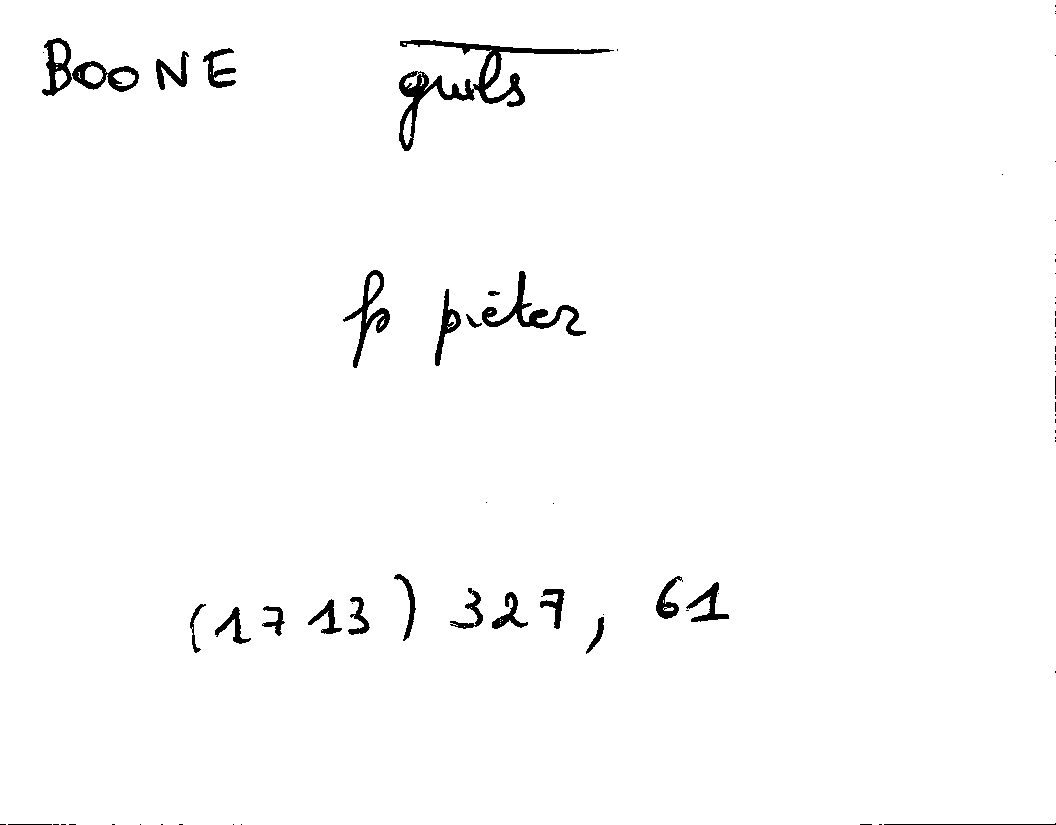 BOONE guils
fs pieter
(1713) 327, 61